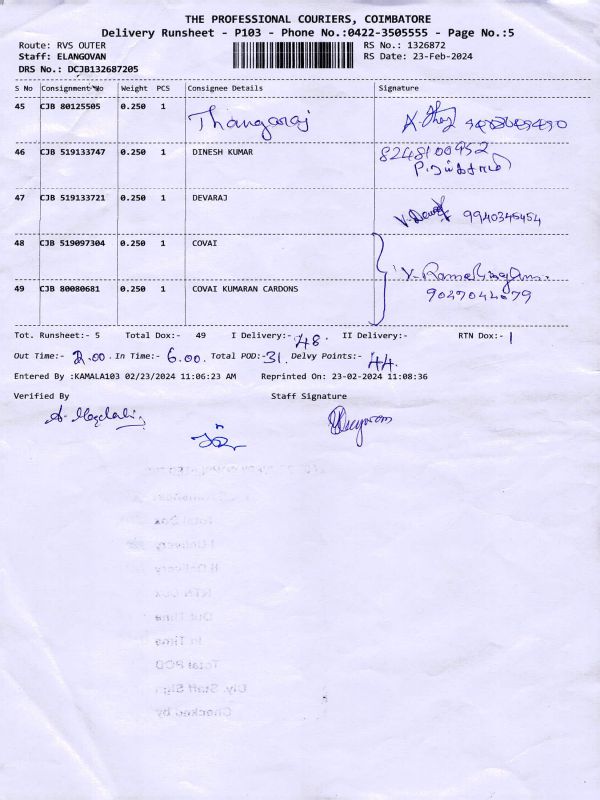 THE PROFESSIONAL COURIERS, COIMBATORE
Delivery Runsheet - P103 - Phone No.:0422-3505555 - Page No.:5
Route: RVS OUTER RS No.: 1326872
Staff: ELANGOVAN RS Date: 23-Feb-2024
DRS No.: DCJB132687205
S No Consignment No Weight PCS Consignee Details Signature
45 CJB 80125505 0.250 1 Thangaraj
46 CJB 519133747 0.250 1 DINESH KUMAR 8248100952
47 CJB 519133721 0.250 1 DEVARAJ 9940345454
48 CJB 519097304 0.250 1 COVAI V. Ramalingam.
49 CJB 80080681 0.250 1 COVAI KUMARAN CARDONS
Tot. Runsheet:- 5 Total Dox:- 49 I Delivery:- 48. II Delivery:- RTN Dox:- 1
Out Time:- In Time:- 6.00. Total POD:- 31. Delvy Points:- 44.
Entered By :KAMALA103 02/23/2024 11:06:23 AM Reprinted On: 23-02-2024 11:08:36
Verified By Staff Signature